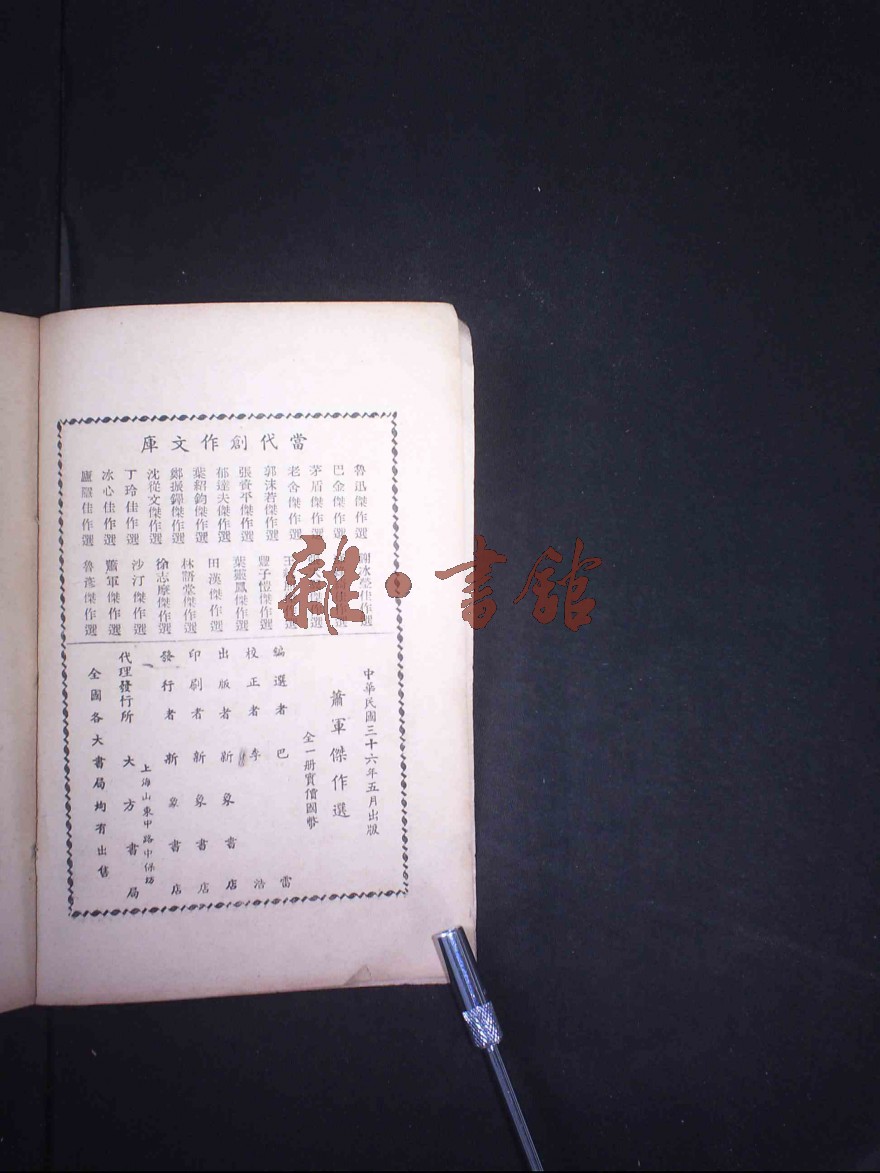 當代創作文庫
魯迅傑作選
巴金傑作選
茅盾傑作選
老舍傑作選
郭沫若傑作選
張資平傑作選
郁達夫傑作選
葉紹鈞傑作選
鄭振鐸傑作選
沈從文傑作選
丁玲佳作選
冰心佳作選
廬隱佳作選
謝冰瑩佳作選
豐子愷傑作選
葉靈鳳傑作選
田漢傑作選
林語堂傑作選
徐志摩傑作選
沙汀傑作選
蕭軍傑作選
魯彥傑作選
中華民國三十六年五月出版
蕭軍傑作選
全一册實價國幣
編選者 巴雷
校正者 李浩
出版者 新象書店
印刷者 新象書店
發行者 新象書店
上海山東中路中保坊
代理發行所 大方書局
全國各大書局均有出售
雜·書館